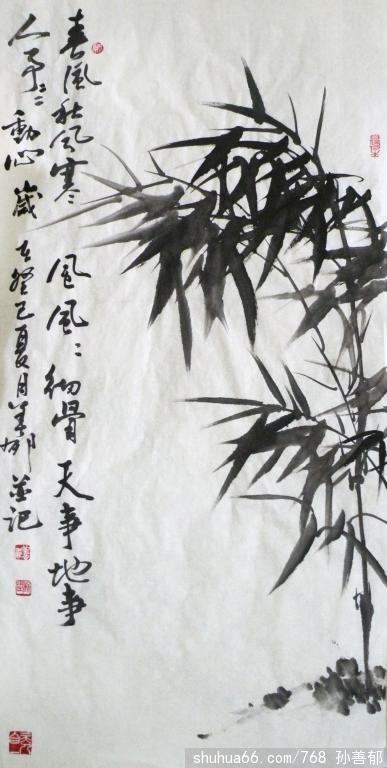 春風秋風寒 風風〻徹骨 天事地事
人事〻動心 歲
在癸巳夏月善郁並記
shuhua66.com/768 孙善郁